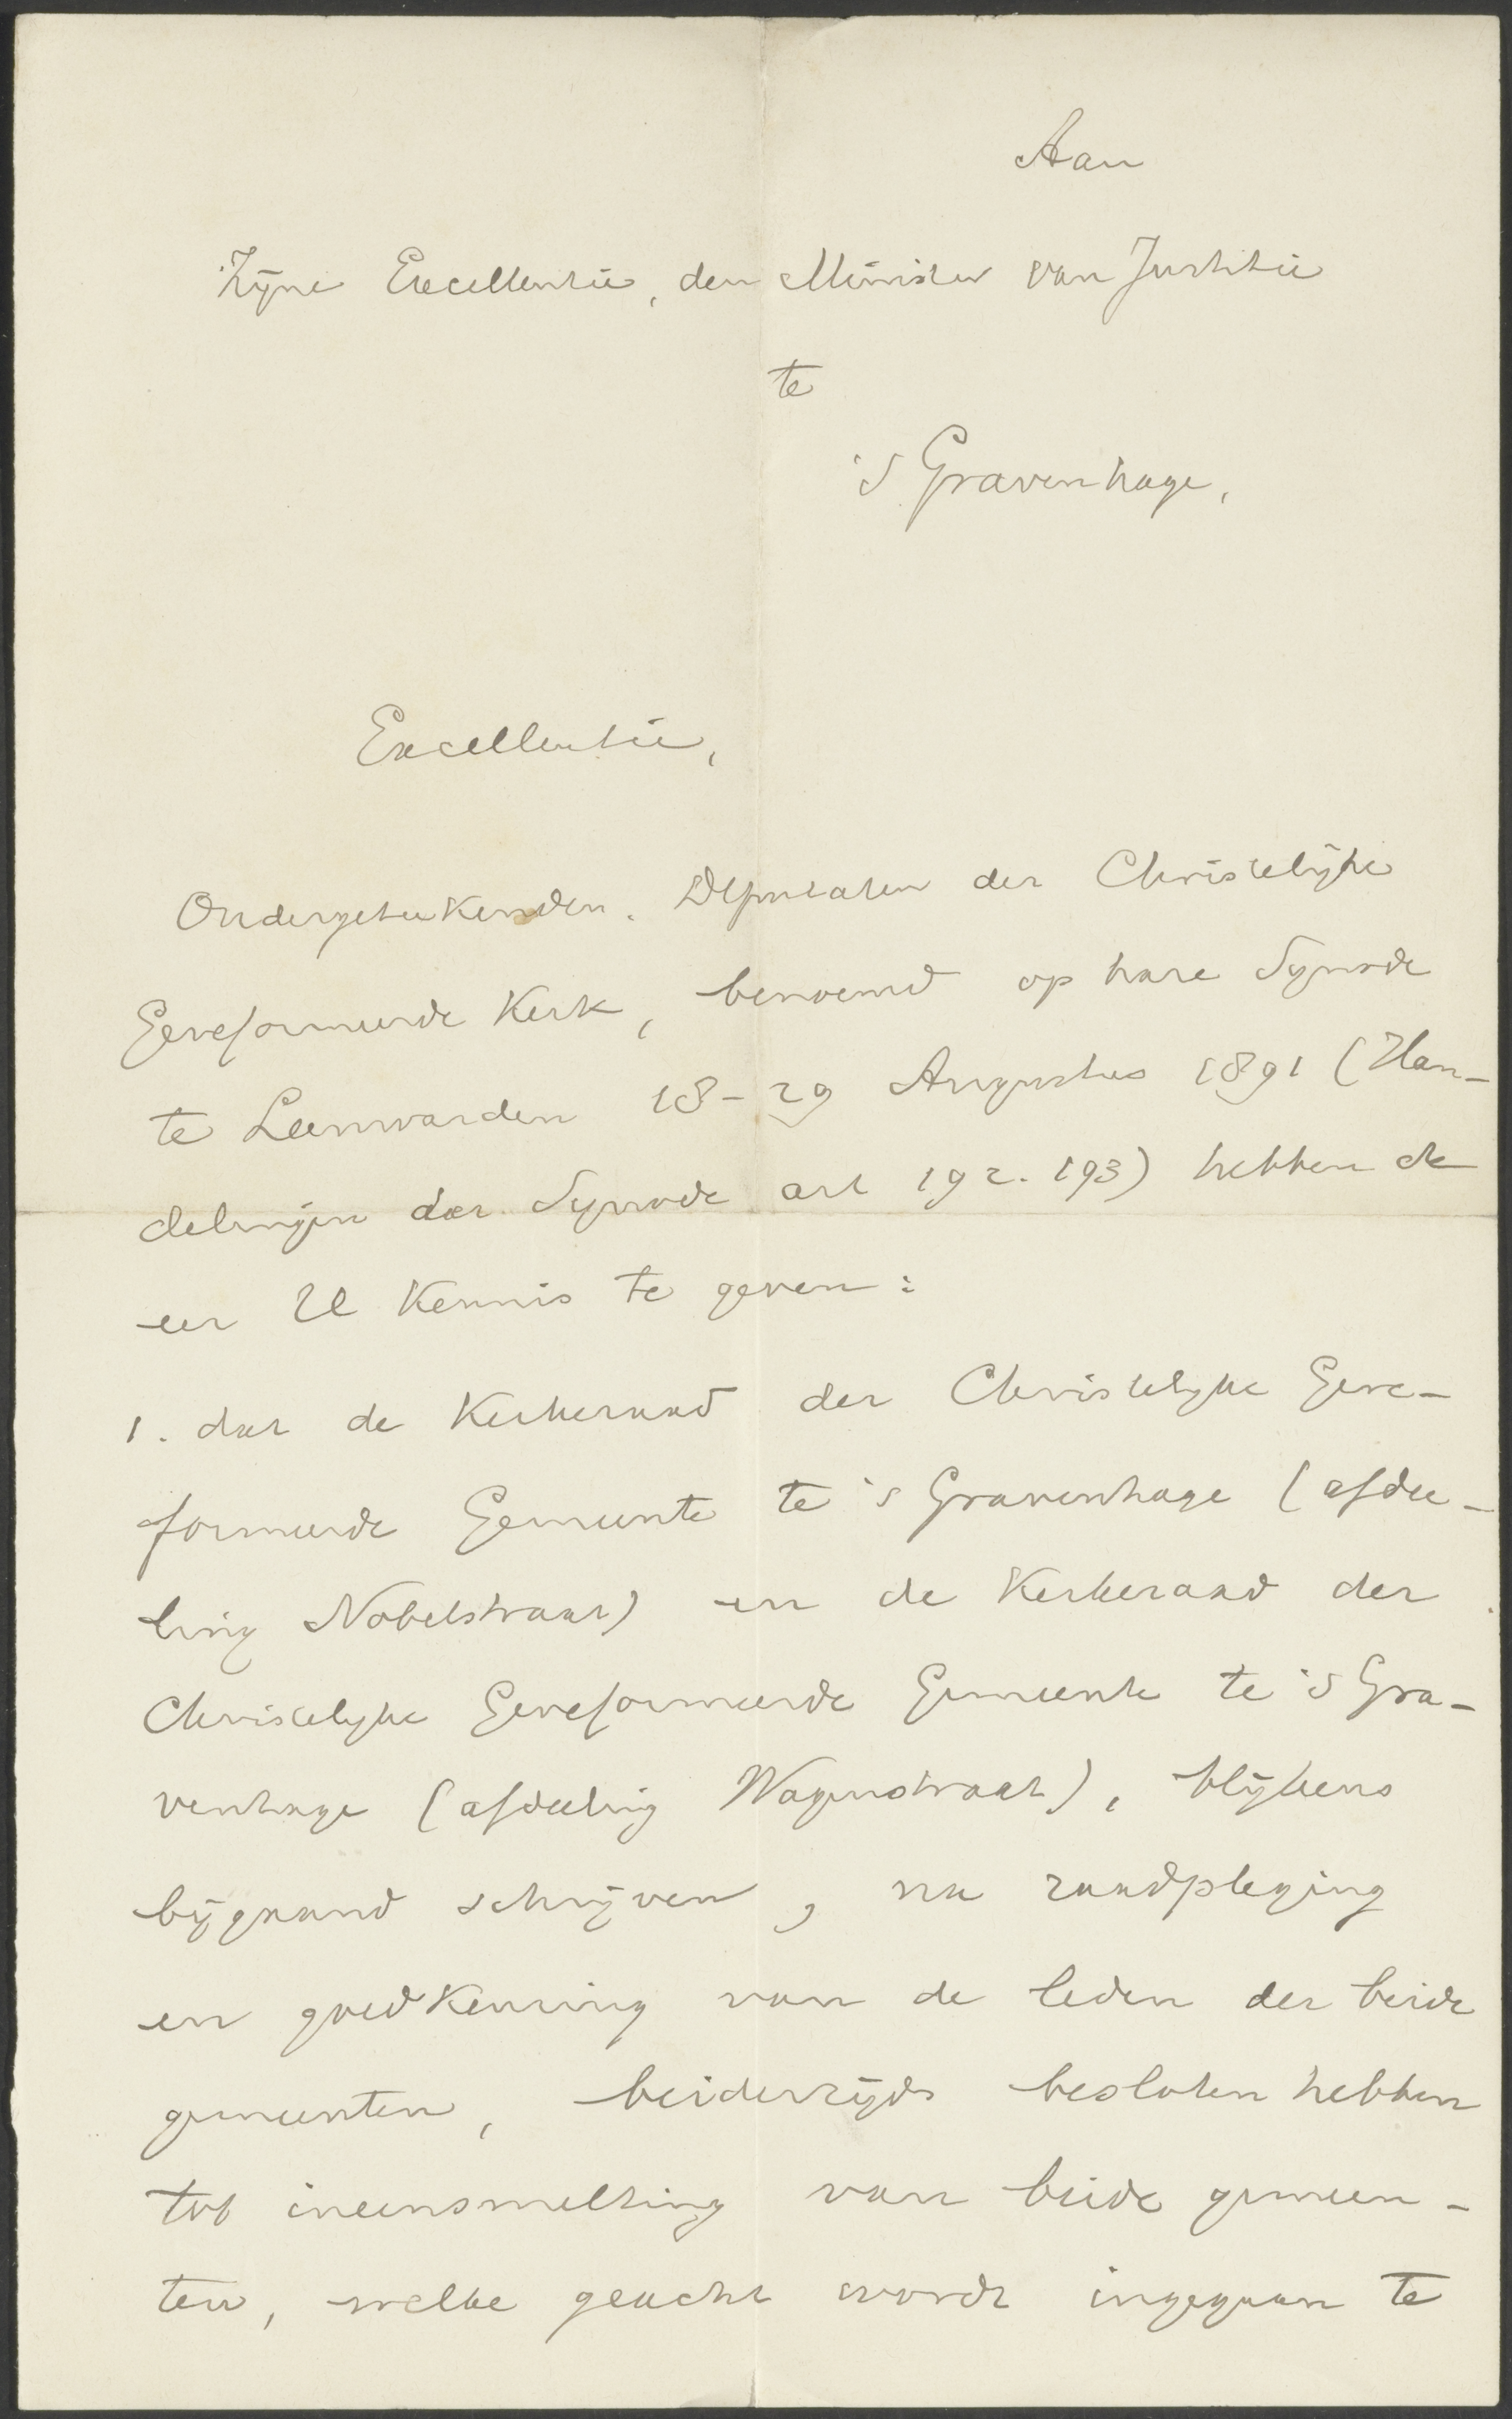 Aan
Zijne Excellentie, den Minister van Justitie
te
's Gravenhage,
Excellentie,
Ondergeteekenden, Deputaten der Christelijke
Gereformeerde Kerk, benoemd op hare Synode
te Leeuwarden 18-29 Augustus 1891 (Han-
delingen der Synode art 192. 193) hebben de
eer U Kennis te geven:
1. dat de Kerkeraad der Christelijke Gere-
formeerde Gemeente te 's Gravenhage (afdee-
ling Nobelstraat) en de Kerkeraad der
Christelijke Gereformeerde Gemeente te 's Gra-
venhage (afdeeling Wagenstraat), blijkens
bijgaand schrijven, na raadpleging
en goedkeuring van de leden der beide
gemeenten, beiderzijds besloten hebben
tot ineensmelting van beide gemeen-
ten, welke geacht wordt ingegaan te